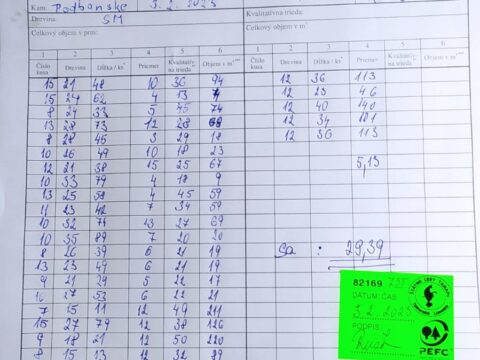 Kam: Podbanske 3. 2. 2025
Drevina: SM
Celkový objem v prm:
Kvalitatívna trieda:
Drevina:
Celkový objem v m³:
1 2 3 4 5 6 1 2 3 4 5 6
Číslo kusa Dĺžka / ks Priemer Kvalitatívna trieda Objem v m³ Číslo kusa Dĺžka / ks Priemer Kvalitatívna trieda Objem v m³
15 21 48 10 36 94 12 36 113
15 24 62 4 13 12 23 46
8 24 33 5 45 74 12 40 140
13 28 73 12 28 69 12 34 101
8 28 45 3 29 18 12 36 113
10 26 49 10 18 23
12 21 38 15 25 67 5,13
10 33 79 4 18 9
13 25 59 4 45 59
11 23 42 7 34 59
10 32 74 13 27 69
10 35 89 7 20 20
8 26 39 6 21 19 Ca : 29,39
13 23 49 6 21 19
9 21 29 5 22 17
27 53 6 22 21
7 15 11 12 49 211
15 27 79 12 38 126
9 18 21 12 50 220
8 15 13 12 32 89
82169
DÁTUM ČAS
3. 2. 2025
PODPIS
PEFC